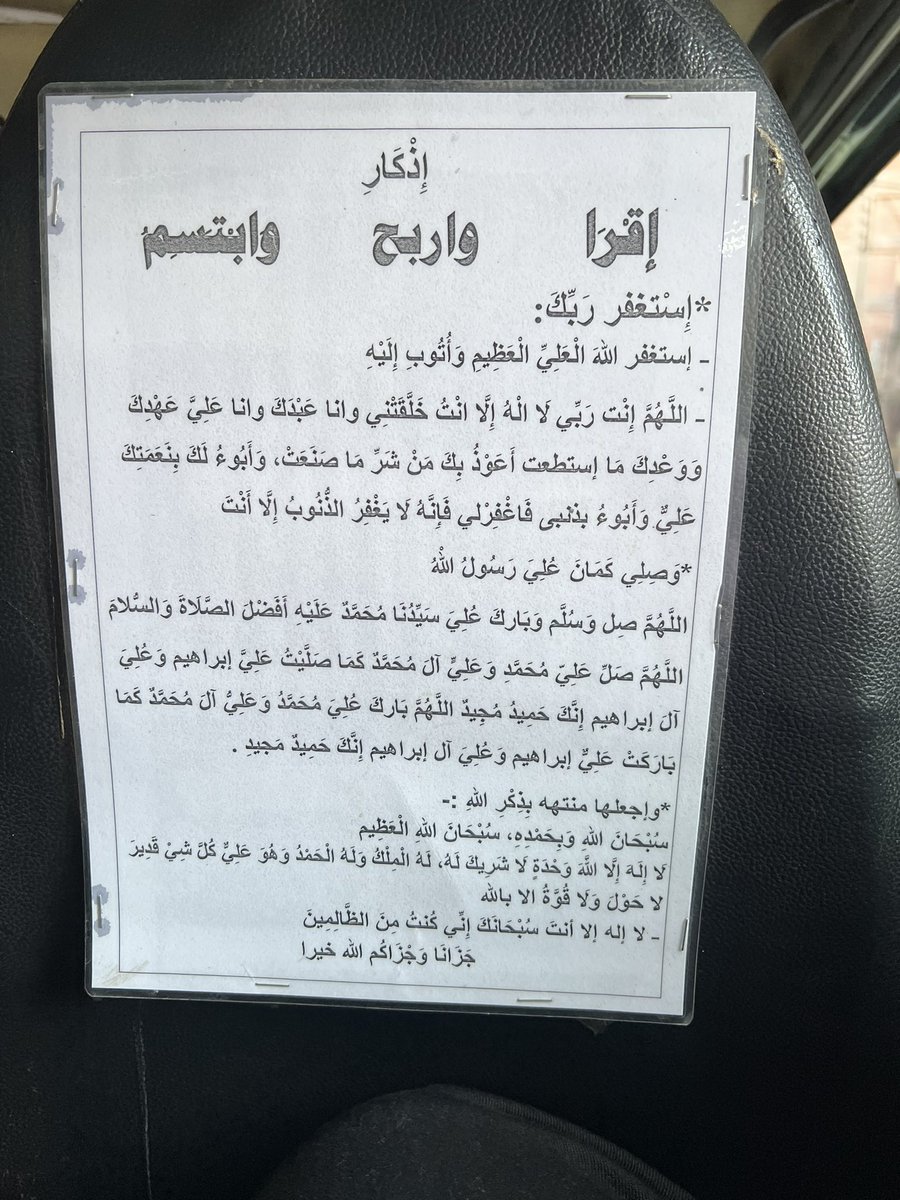 إِذْكَارِ
إِقْرَا واربح وابْتَسِمُ
*إِسْتَغفر رَبِّكَ:
- إستغفر اللهَ الْعَلِيِّ الْعَظِيمِ وَأُتُوبِ إِلَيْهِ
- اللَّهُمَّ إِنْت رَبِّي لَا الْهُ إِلَّا انْتُ خَلَّقَتْنِي وانا عَبْدَكَ وانا عَلَيَّ عَهْدِكَ
وَوَعْدِكَ مَا إستطعت أَعَوْذُ بِكَ مَنْ شَرِّ مَا صَنَعَتْ، وَأَبُوءُ لَكَ بِنَعَمَتِكَ
عَلِيٌّ وَأَبُوءُ بذنبى فَاغْفِرْلي فَإِنَّهُ لَا يَغْفِرُ الذُّنُوبُ إِلَّا أَنْتَ
*وَصِلِي كَمَانَ عُلِيَ رَسُولُ اللهُ
اللَّهُمَّ صِل وَسُلَّم وَبَارِكَ عُلِيَ سَيِّدُنَا مُحَمَّدٌ عَلَيْهِ أَفَضْلَ الصَّلَاةَ وَالسُّلامَ
اللهُمَّ صَلِّ عَلِيّ مُحَمَّدِ وَعَلِيٍّ آلَ مُحَمَّدٌ كَمَا صَلَّيْتُ عَلِيَّ إبراهيم وَعُلِيَ
آلَ إبراهيم إِنَّكَ حَمِيدُ مُجِيدٌ اللَّهُمَّ بَارِكَ عُلِيَ مُحَمَّدُ وَعَلِيُّ آلَ مُحَمَّدٌ كَمَا
بَارَكَتْ عَلِيٌّ إبراهيم وَعُلِيَ آل إبراهيم إِنَّكَ حَمِيدٌ مَجِيدِ .
*وإجعلها منتهه بِذِكْرِ اللهِ :-
سُبْحَانَ اللهِ وَبِحَمْدِهِ، سُبْحَانَ اللهِ الْعَظِيم
لَا إِلَهَ إِلَّا اللَّهَ وَحْدَةٍ لَا شَرِيكَ لَهُ، لَهُ الْمِلْكُ وَلَهُ الْحَمْدُ وَهُوَ عَلِيٌّ كُلَّ شِيْ قَدِيرَ
لا حَوْلَ وَلَا قُوَّةُ الا بالله
- لا إله إلا أنتَ سُبْحَانَكَ إِنِّي كُنتُ مِنَ الظَّالِمِينَ
جَزَانَا وَجْزَاكُم الله خيرا